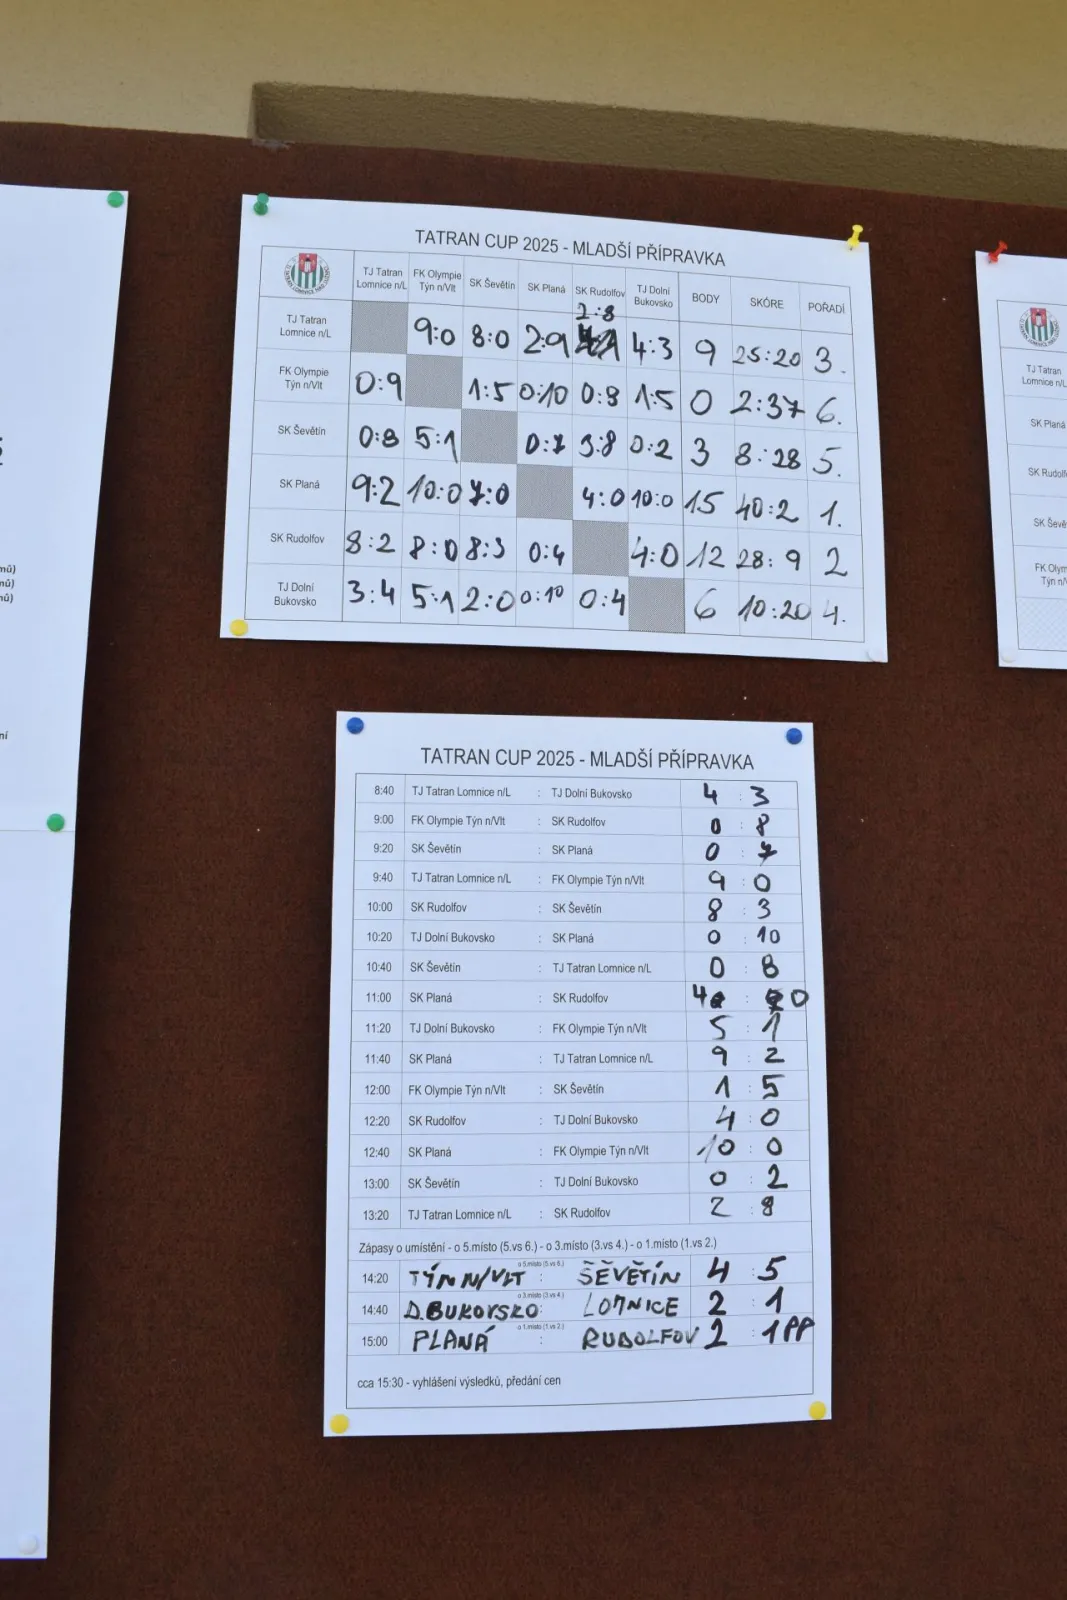 TATRAN CUP 2025 - MLADŠÍ PŘÍPRAVKA
TJ Tatran Lomnice n/L FK Olympie Týn n/Vlt SK Ševětín SK Planá SK Rudolfov TJ Dolní Bukovsko BODY SKÓRE POŘADÍ
TJ Tatran Lomnice n/L 9:0 8:0 2:9 2:8 4:3 9 25:20 3.
FK Olympie Týn n/Vlt 0:9 1:5 0:10 0:8 1:5 0 2:37 6.
SK Ševětín 0:8 5:1 0:7 3:8 0:2 3 8:28 5.
SK Planá 9:2 10:0 7:0 4:0 10:0 15 40:2 1.
SK Rudolfov 8:2 8:0 8:3 0:4 4:0 12 28:9 2
TJ Dolní Bukovsko 3:4 5:1 2:0 0:10 0:4 6 10:20 4.
TJ Tatran
Lomnice n/L
SK Planá
TATRAN CUP 2025 - MLADŠÍ PŘÍPRAVKA
8:40 TJ Tatran Lomnice n/L : TJ Dolní Bukovsko 4 : 3
9:00 FK Olympie Týn n/Vlt : SK Rudolfov 0 : 8
9:20 SK Ševětín : SK Planá 0 : 7
9:40 TJ Tatran Lomnice n/L : FK Olympie Týn n/Vlt 9 : 0
10:00 SK Rudolfov : SK Ševětín 8 : 3
10:20 TJ Dolní Bukovsko : SK Planá 0 : 10
10:40 SK Ševětín : TJ Tatran Lomnice n/L 0 : 8
11:00 SK Planá : SK Rudolfov 4 : 0
11:20 TJ Dolní Bukovsko : FK Olympie Týn n/Vlt 5 : 1
11:40 SK Planá : TJ Tatran Lomnice n/L 9 : 2
12:00 FK Olympie Týn n/Vlt : SK Ševětín 1 : 5
12:20 SK Rudolfov : TJ Dolní Bukovsko 4 : 0
12:40 SK Planá : FK Olympie Týn n/Vlt 10 : 0
13:00 SK Ševětín : TJ Dolní Bukovsko 0 : 2
13:20 TJ Tatran Lomnice n/L : SK Rudolfov 2 : 8
Zápasy o umístění - o 5.místo (5.vs 6.) - o 3.místo (3.vs 4.) - o 1.místo (1.vs 2.)
o 5.místo (5.vs 6.)
14:20 TÝN N/VLT : ŠEVĚTÍN 4 : 5
o 3.místo (3.vs 4.)
14:40 D.BUKOVSKO : LOMNICE 2 : 1
o 1.místo (1.vs 2.)
15:00 PLANÁ : RUDOLFOV 2 : 1 PP
cca 15:30 - vyhlášení výsledků, předání cen